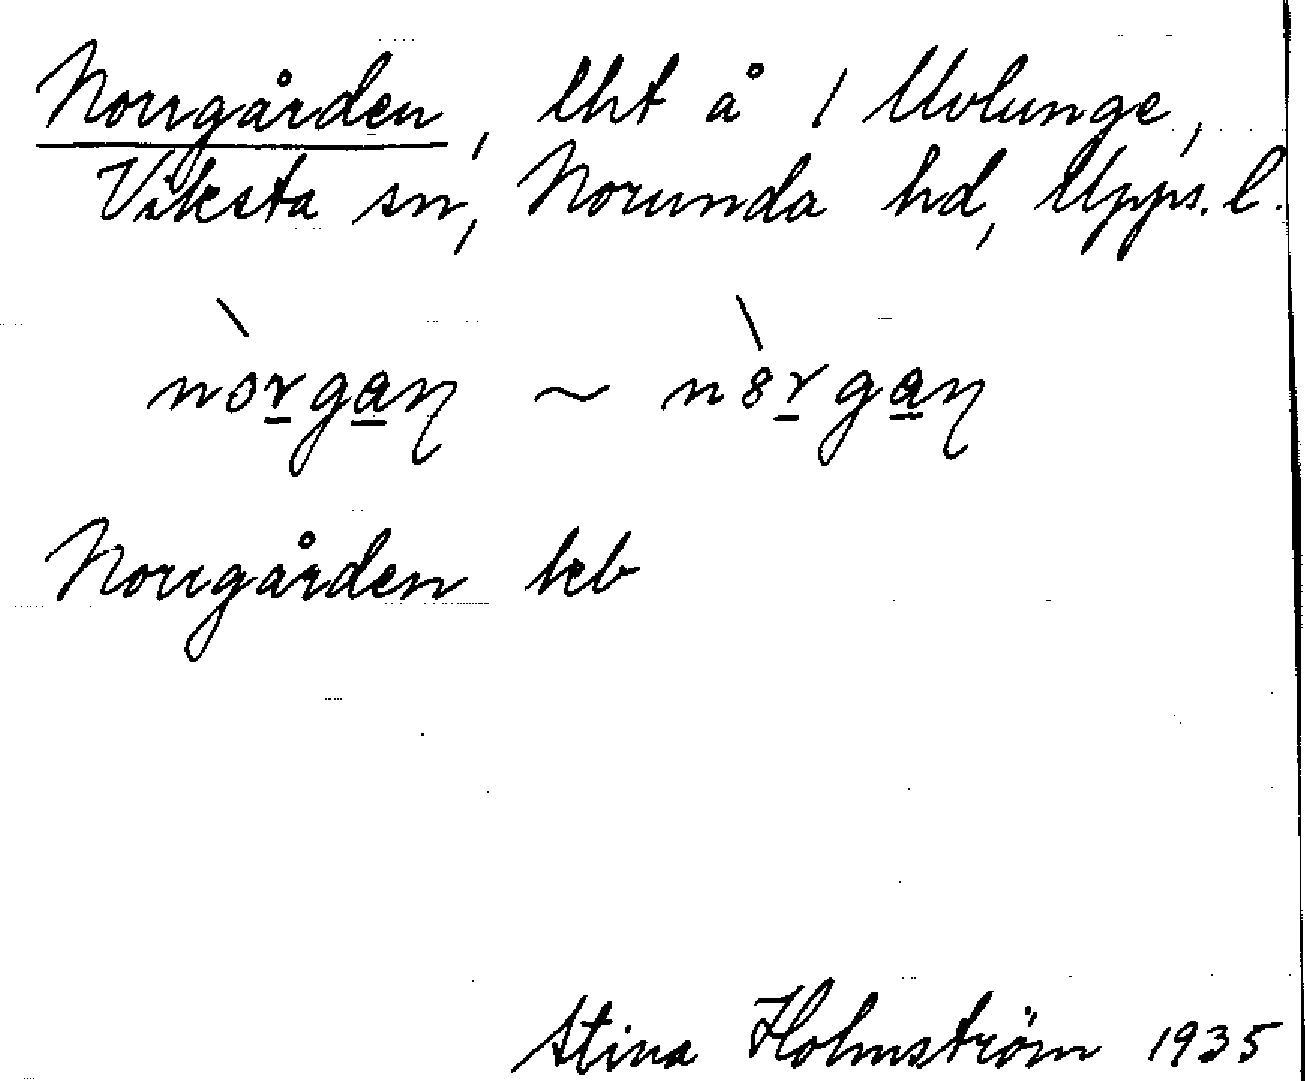 Norrgården, lht å 1 Uvlunge,
Viksta sn, Norunda hd, Upps. l.
nòrgaη ~ nò̈rgaη
Norrgården keb
Stina Holmström 1935